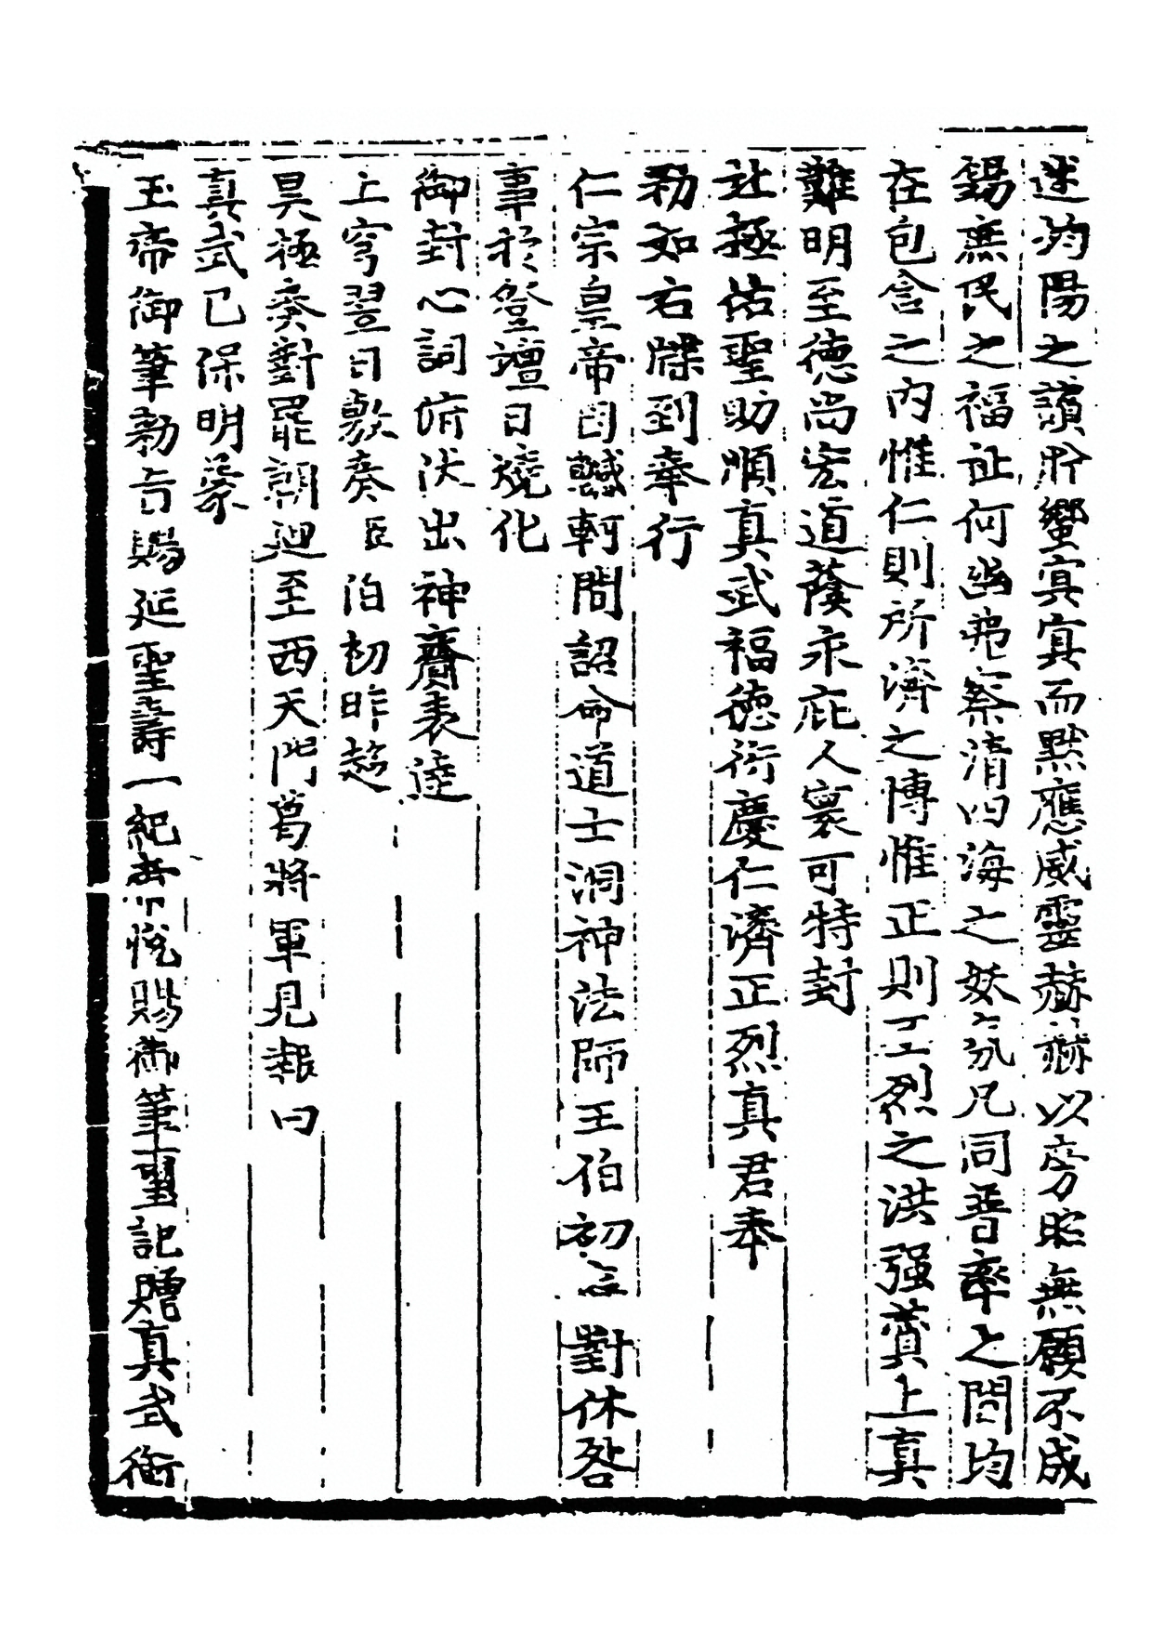 迷均陽之讀肸蠁寘寘而黙應威靈赫赫以旁昭無願不成
錫庶民之福祉何幽弗察清四海之妖氛凡同普率之間均
在包含之内惟仁則所濟之博惟正則丕烈之洪强蓂上真
難明至德尚宏道䕃永庇人寰可特封
北極佑聖助順真武福德衍慶仁濟正烈真君奉
勑如右牒到奉行
仁宗皇帝因韈軻間詔命道士洞神法師王伯初言對休咎
事於登壇日燒化
御封心詞俯伏出神賫表達
上穹翌日敷奏臣伯初昨趍
昊極奏對罷朝廻至西天門葛將軍見報曰
真武已保明蒙
玉帝御筆勑旨賜延聖壽一紀帝悦賜御筆璽記贈真武衍